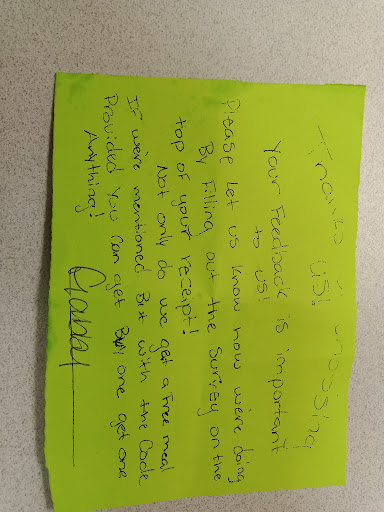 Thanks
US!
Your Feedback is important
to us!
Please Let us know how we're doing
By Filling out the Survey on the
top of your receipt!
Not only do we get a Free meal
If we're mentioned But with the Code
Provided You Can get Buy one get one
Anything!